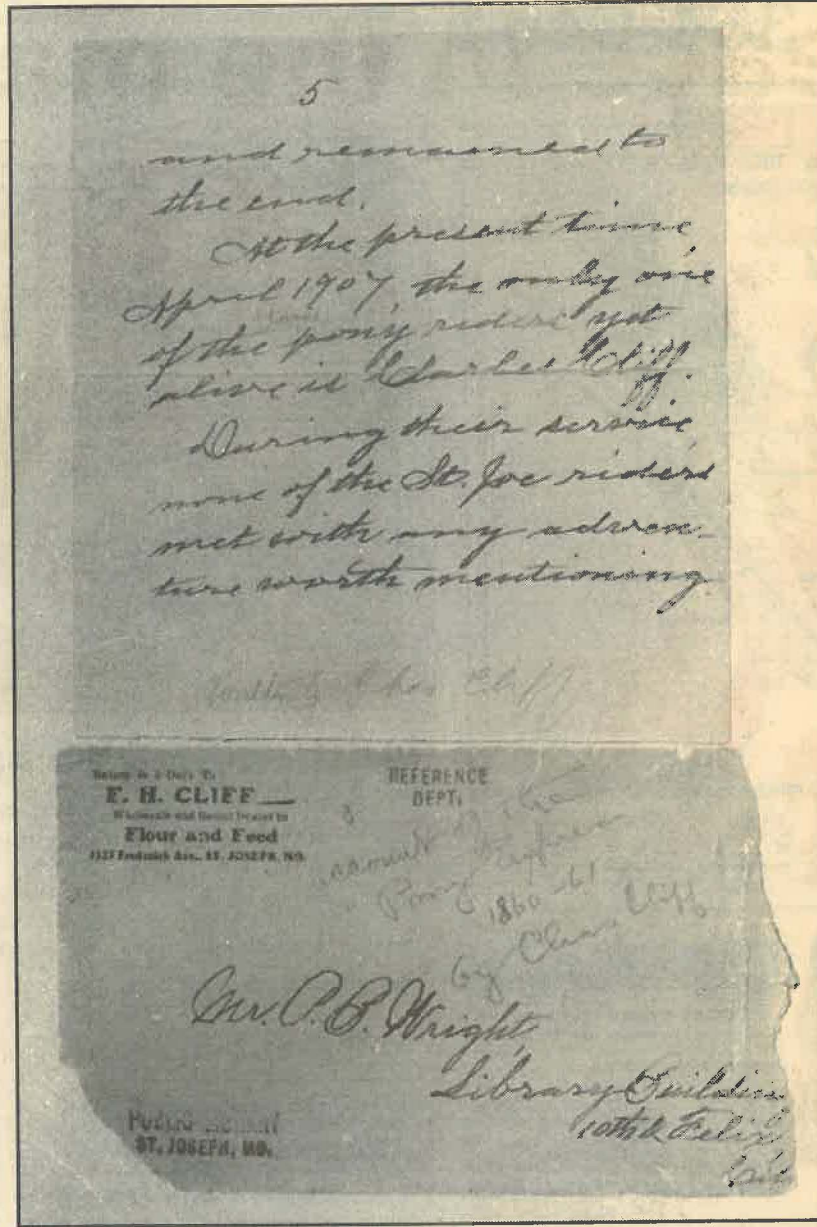 5
and remained to
the end.
At the present time,
April 1907, the only one
of the pony riders yet
alive is Charles Cliff.
During their service
none of the St. Joe riders
met with any adven-
ture worth mentioning.
Chas Cliff
Return in 5 Days To
F. H. CLIFF
Wholesale and Retail Dealer in
Flour and Feed
Frederick Ave., ST. JOSEPH, MO.
REFERENCE
DEPT.
account of the
Pony Express
1860-61
by Chas Cliff
Mr. P. B. Wright,
Library Building
10th & Felix
PUBLIC LIBRARY
ST. JOSEPH, MO.